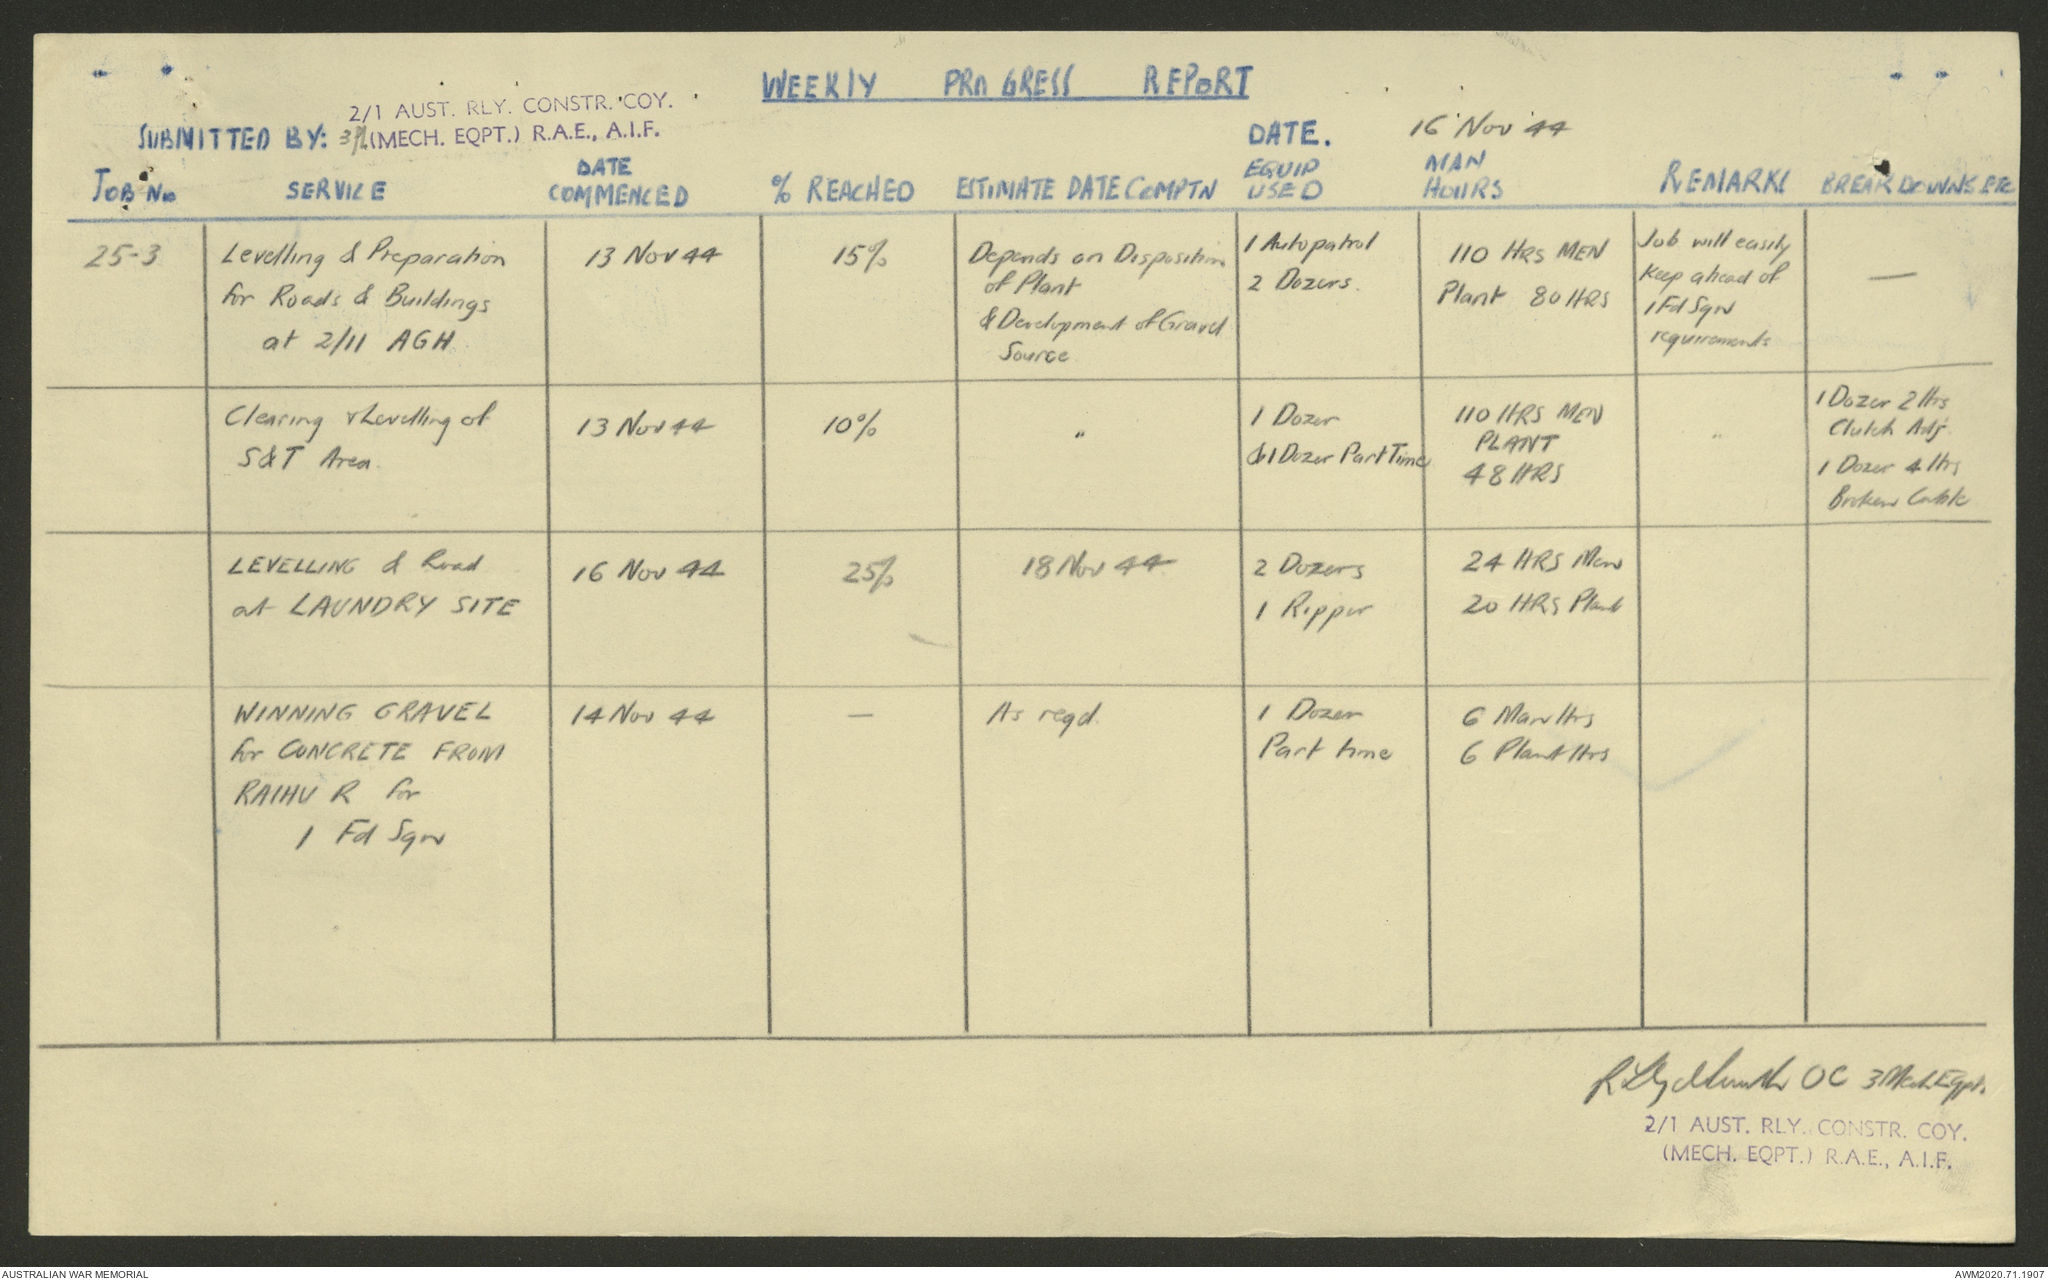 WEEKLY PROGRESS REPORT
2/1 AUST. RLY. CONSTR. COY.
SUBMITTED BY: 3 Pl (MECH. EQPT.) R.A.E., A.I.F.
DATE. 16 Nov 44
JOB No
SERVICE
DATE
COMMENCED
% REACHED
ESTIMATE DATE COMPTN
EQUIP
USED
MAN
HOURS
REMARKS
BREAKDOWNS ETC
25-3
Levelling & Preparation
for Roads & Buildings
at 2/11 AGH
13 Nov 44
15%
Depends on Disposition
of Plant
& Development of Gravel
Source
1 Autopatrol
2 Dozers.
110 HRS MEN
Plant 80 HRS
Job will easily
keep ahead of
1 Fd Sqn
requirements
—
Clearing & Levelling of
S&T Area.
13 Nov 44
10%
"
1 Dozer
& 1 Dozer Part Time
110 HRS MEN
PLANT
48 HRS
"
1 Dozer 2 Hrs
Clutch Adj.
1 Dozer 4 Hrs
Broken Cable
LEVELLING & Road
at LAUNDRY SITE
16 Nov 44
25%
18 Nov 44
2 Dozers
1 Ripper
24 HRS Men
20 HRS Plant
WINNING GRAVEL
for CONCRETE FROM
RAIHU R for
1 Fd Sqn
14 Nov 44
—
As reqd.
1 Dozer
Part time
6 Man Hrs
6 Plant Hrs
OC 3 Mech. Eqpt.
2/1 AUST. RLY. CONSTR. COY.
(MECH. EQPT.) R.A.E., A.I.F.
AUSTRALIAN WAR MEMORIAL
AWM2020.71.1907